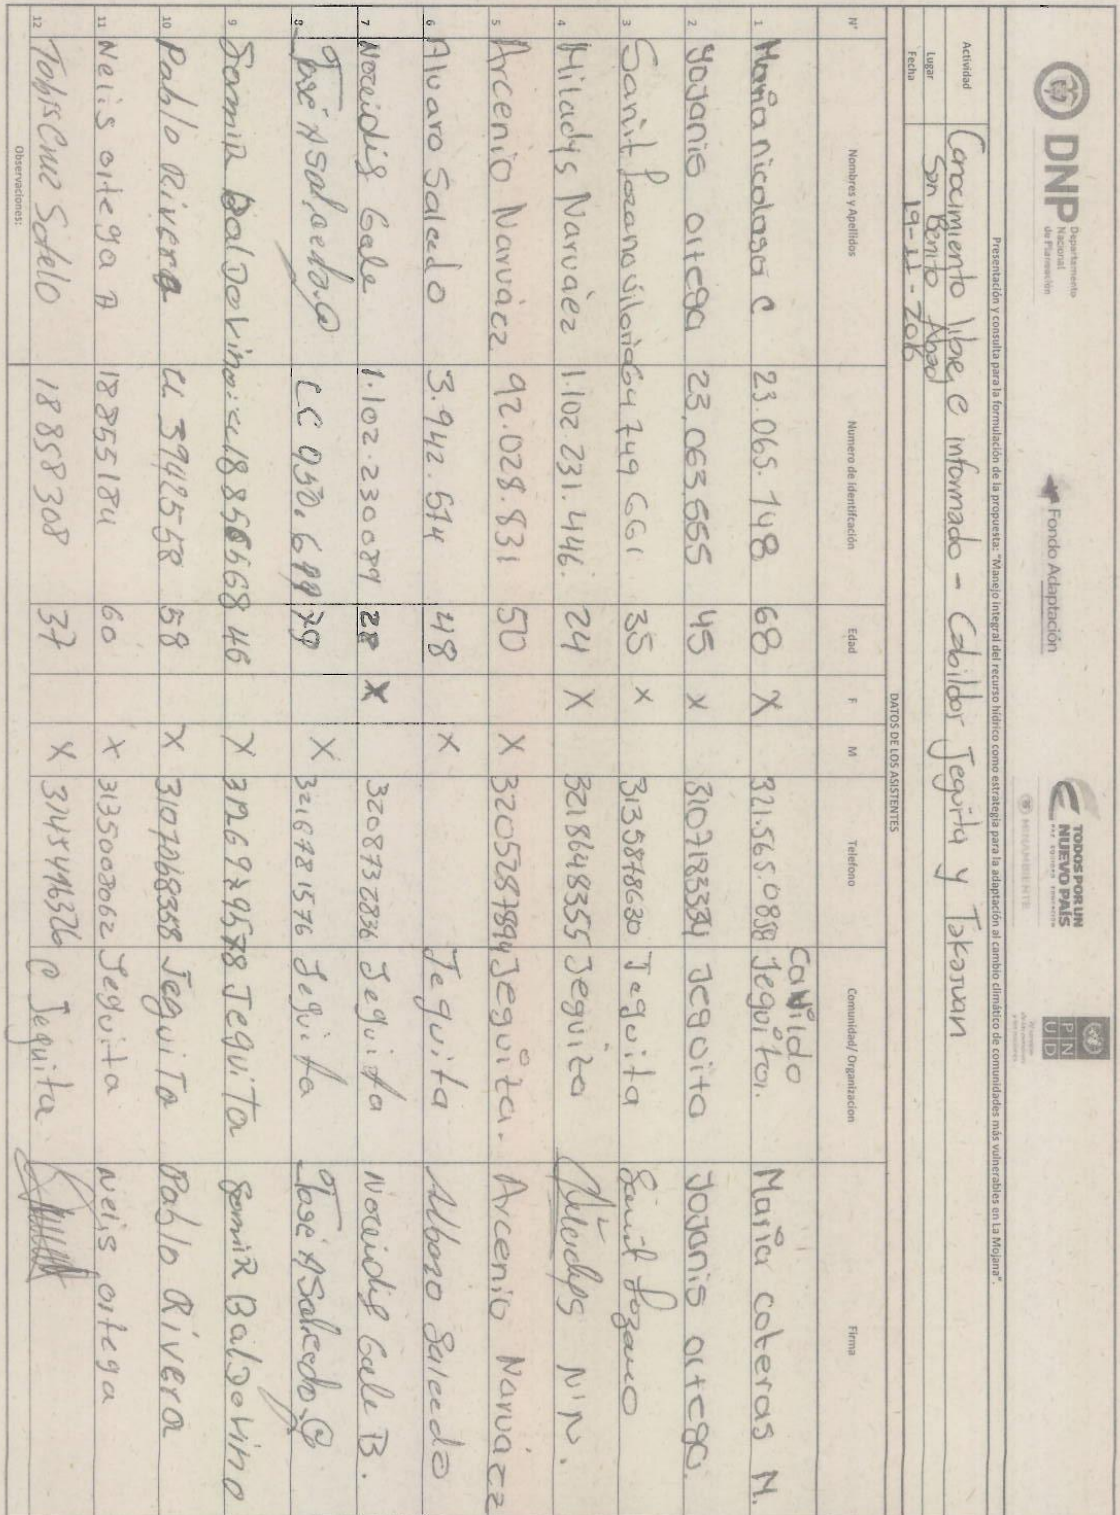 DNP Departamento
Nacional
de Planeación
Fondo Adaptación
TODOS POR UN
NUEVO PAÍS
PAZ EQUIDAD EDUCACIÓN
MINAMBIENTE
PNUD
Presentación y consulta para la formulación de la propuesta: "Manejo integral del recurso hídrico como estrategia para la adaptación al cambio climático de comunidades más vulnerables en La Mojana".
Actividad Conocimiento libre, e informado - Cabildos Jeguita y Tokasuan
Lugar San Benito Abad
Fecha 19-11-2016
DATOS DE LOS ASISTENTES
N° Nombres y Apellidos Numero de identifcación Edad F M Telefono Comunidad/ Organizacion Firma
1 Maria nicolasa C 23.065.748 68 X 321.565.0858 Cabildo Jeguita. Maria coteras N.
2 Yojanis ortega 23,063,555 45 X 3107183334 Jeguita Yojanis ortega.
3 Sanit Lozano viloria 64749661 35 X 3135878630 Jeguita Sanit Lozano
4 Miladys Narváez 1.102.231.446. 24 X 3218648355 Jeguita Miladys N N.
5 Arcenio Narváez 92.028.831 50 X 3205287894 Jeguita. Arcenio Narváez
6 Alvaro Salcedo 3.942.574 48 X Jequita Albaro Salcedo
7 Noreidis Gale 1.102.230089 28 X 3208732836 Jeguita Noreidis Gale B.
8 José A Salcedo.C CC 950.699 79 X 3216781576 Jeguita José A Salcedo.C
9 Samir BalDovino 18856568 46 X 3126979578 JeguiTa Samir BalDovino
10 Pablo Rivera cc 3942558 58 X 3107068358 JeguiTa Pablo Rivera
11 Nelis ortega A 18855184 60 X 3135003062 Jeguita Nelis ortega
12 Tobis Cruz Sotelo 18858308 37 X 3145446326 @ Jequita
Observaciones: